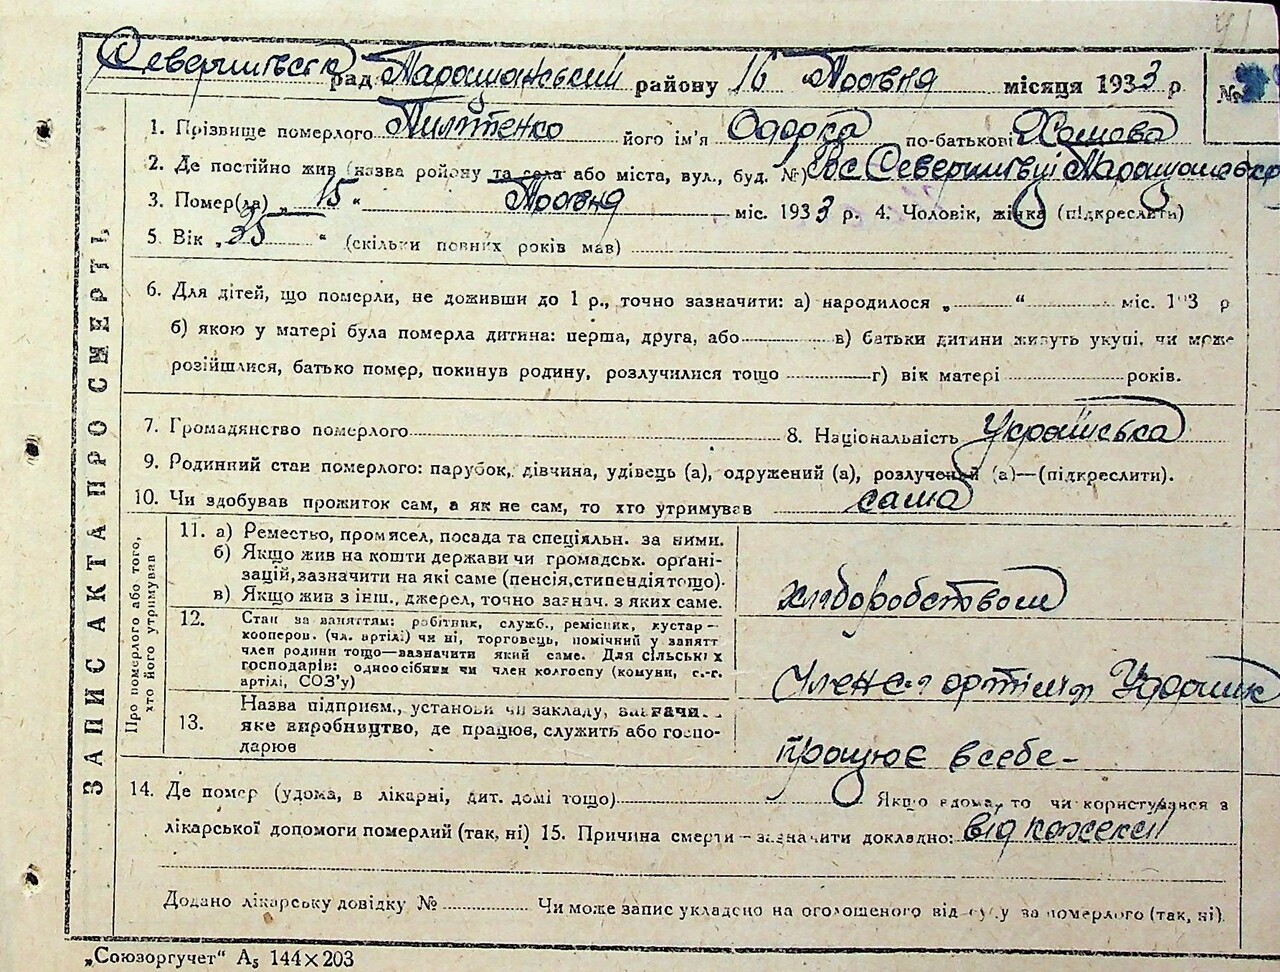 41
Северинівська рад Таращанський району 16 Травня місяця 1933 р. №
1. Прізвище померлого Пилипенко його ім'я Одарка по-батькові Хомова
2. Де постійно жив (назва району та села або міста, вул., буд. №) в с Северинівці Таращанськ
3. Помер(ла) „ 15 “ Травня міс. 1933 р. 4. Чоловік, жінка (підкреслити)
5. Вік „ 35 “ (скільки повних років мав)
6. Для дітей, що померли, не доживши до 1 р., точно зазначити: а) народилося „ “ міс. 193 р
б) якою у матері була померла дитина: перша, друга, або в) батьки дитини живуть укупі, чи може
розійшлися, батько помер, покинув родину, розлучилися тощо г) вік матері років.
7. Громадянство померлого 8. Національність Українська
9. Родинний стан померлого: парубок, дівчина, удівець (а), одружений (а), розлучений (а)—(підкреслити).
10. Чи здобував прожиток сам, а як не сам, то хто утримував сама
ЗАПИС АКТА ПРО СМЕРТЬ
Про померлого або того,
хто його утримував
11. а) Ремество, промисел, посада та спеціяльн. за ними.
б) Якщо жив на кошти держави чи громадськ. орґані-
зацій, зазначити на які саме (пенсія, стипендія тощо).
в) Якщо жив з інш., джерел, точно зазнач. з яких саме.
хліборобством
12. Стан за заняттям: робітник, служб., ремісник, кустар—
кооперов. (чл. артілі) чи ні, торговець, помічний у занятт
член родини тощо—зазначити який саме. Для сільських
господарів: одноосібник чи член колгоспу (комуни, с.-г.
артілі, СОЗ'у)
Ударник
13. Назва підприєм., установи чи закладу, зазначи.
яке виробництво, де працює, служить або госпо-
дарює
працює всебе -
14. Де помер (удома, в лікарні, дит. домі тощо) Якщо вдома, то чи користувався з
лікарської допомоги померлий (так, ні) 15. Причина смерти—зазначити докладно: від
Додано лікарську довідку № Чи може запис укладено на оголошеного від суду за померлого (так, ні).
„Союзоргучет“ А₅ 144×203